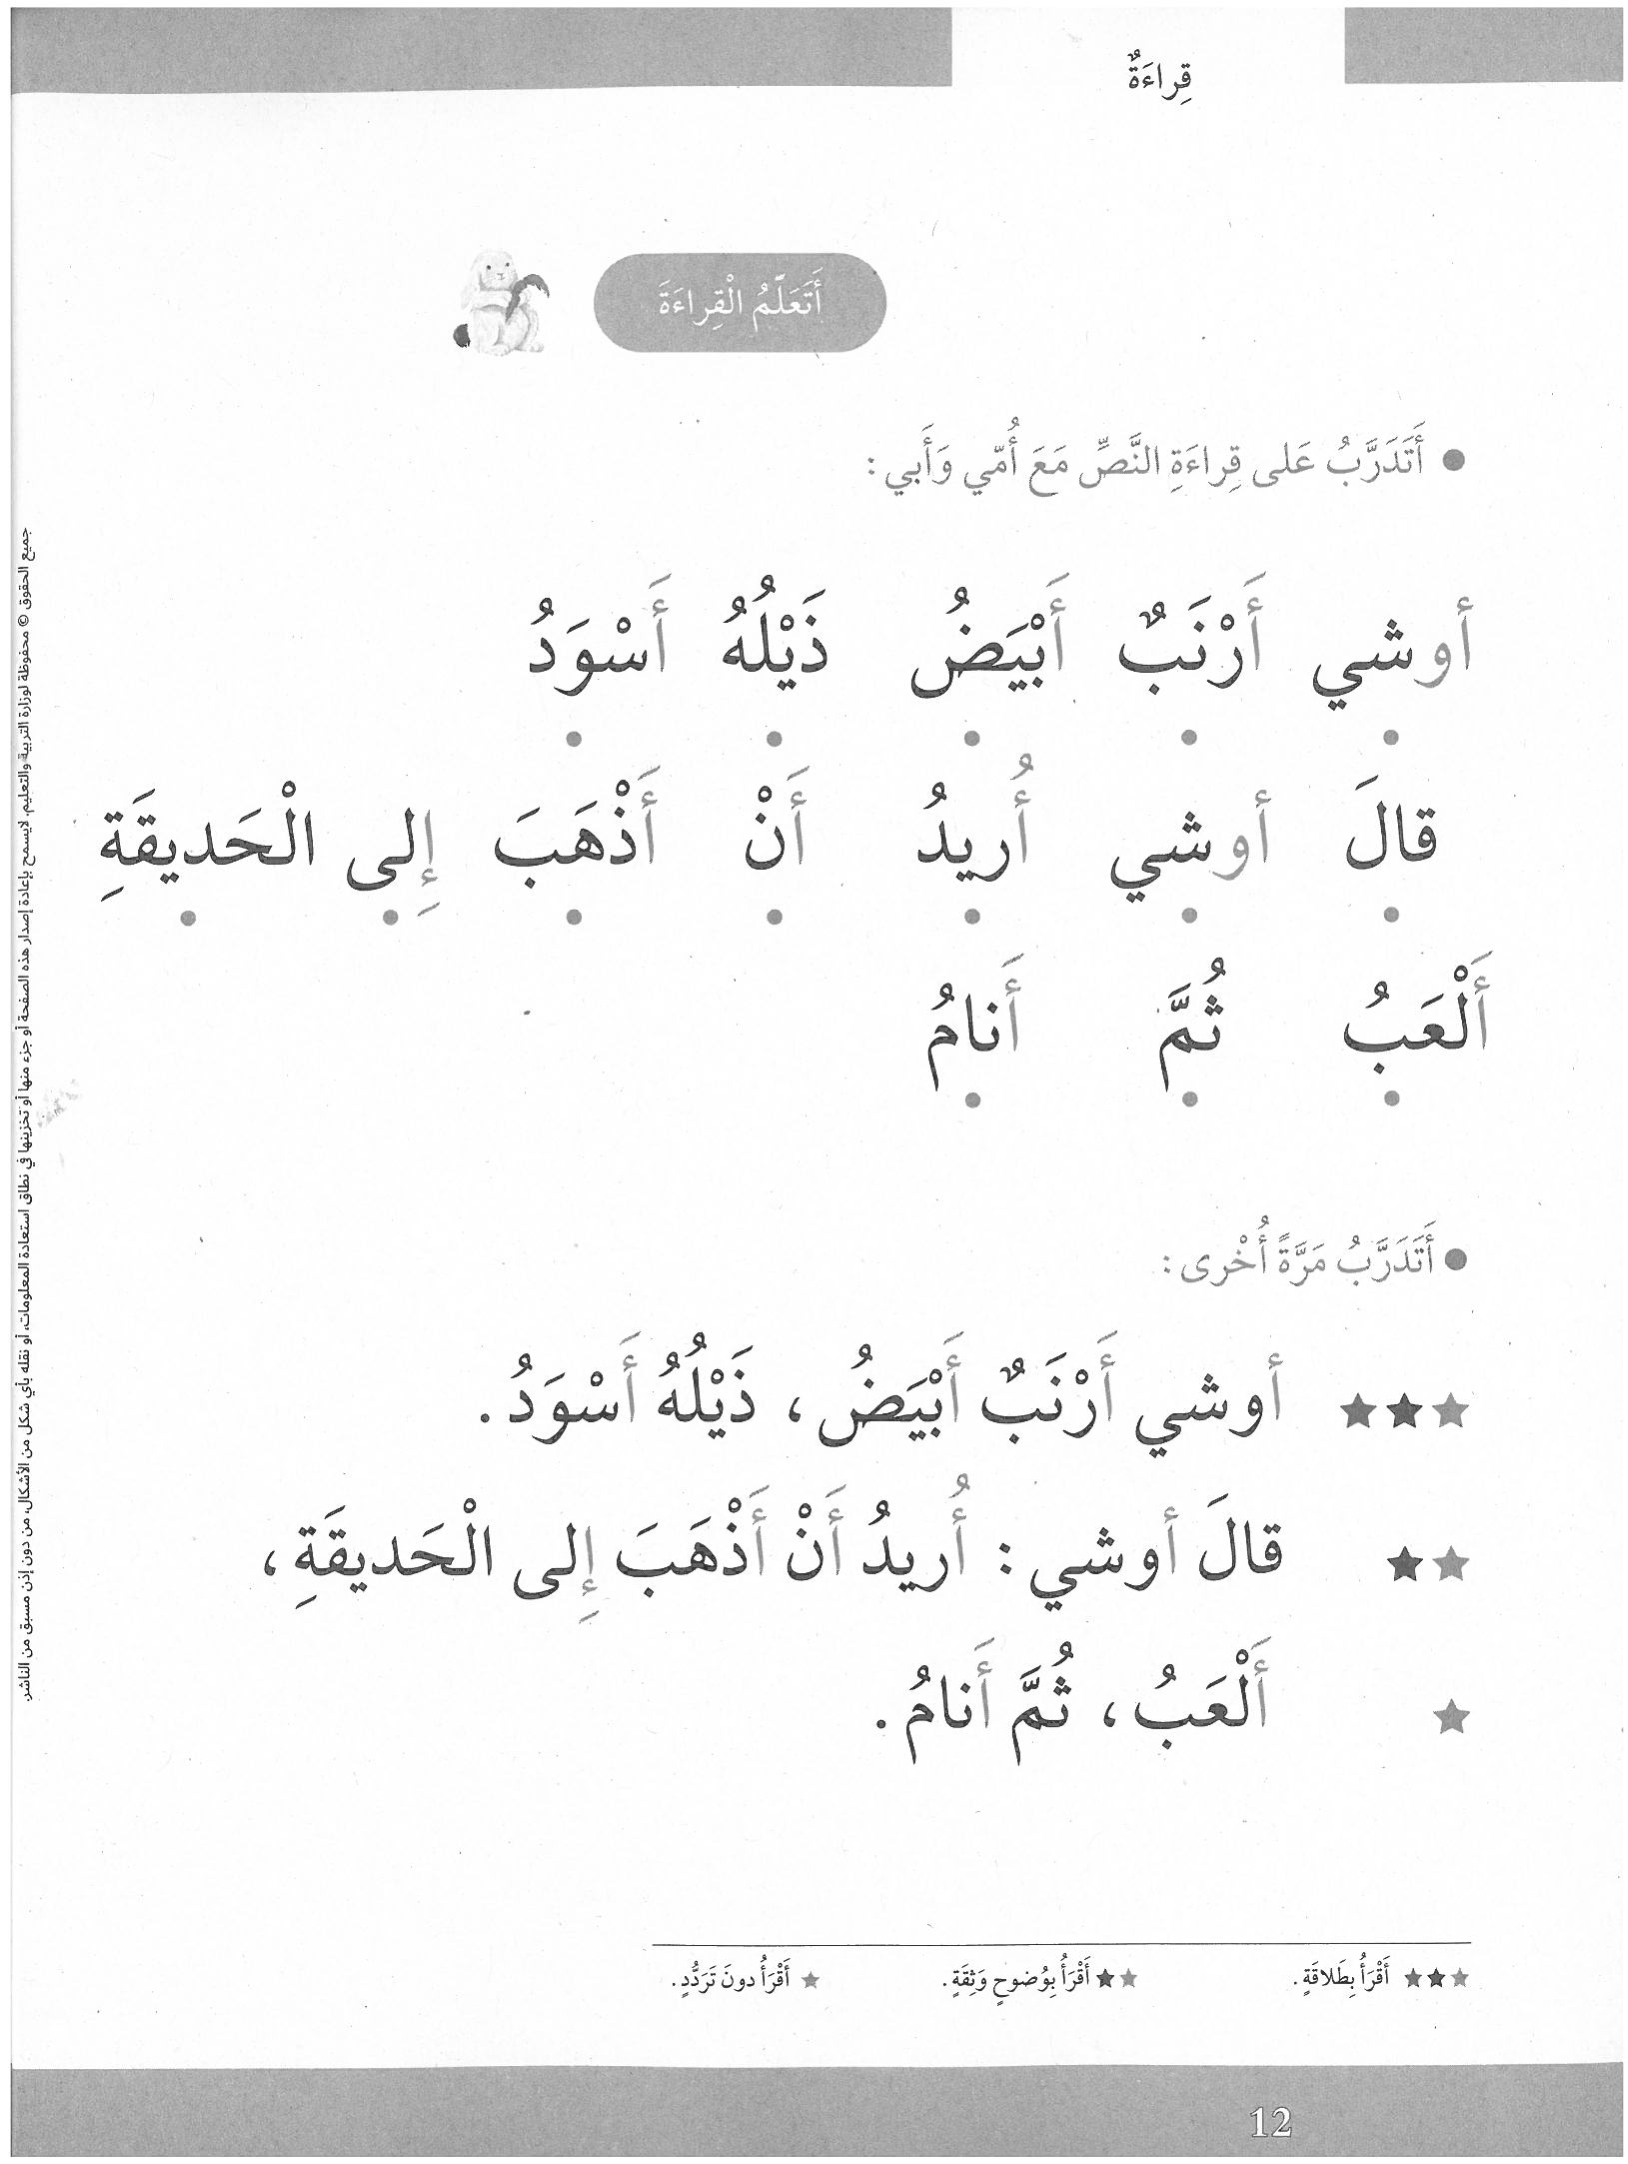 قِراءَةٌ
أَتَعَلَّمُ الْقِراءَةَ
● أَتَدَرَّبُ عَلى قِراءَةِ النَّصِّ مَعَ أُمّي وَأَبي :
أوشي أَرْنَبٌ أَبْيَضُ ذَيْلُهُ أَسْوَدُ
قالَ أوشي أُريدُ أَنْ أَذْهَبَ إِلى الْحَديقَةِ
أَلْعَبُ ثُمَّ أَنامُ
● أَتَدَرَّبُ مَرَّةً أُخْرى :
★★★ أوشي أَرْنَبٌ أَبْيَضُ ، ذَيْلُهُ أَسْوَدُ .
★★ قالَ أوشي : أُريدُ أَنْ أَذْهَبَ إِلى الْحَديقَةِ ،
★ أَلْعَبُ ، ثُمَّ أَنامُ .
★★★ أَقْرَأُ بِطَلاقَةٍ . ★★ أَقْرَأُ بِوُضوحٍ وَثِقَةٍ . ★ أَقْرَأُ دونَ تَرَدُّدٍ .
12
جميع الحقوق © محفوظة لوزارة التربية والتعليم. لايسمح بإعادة إصدار هذه الصفحة أو جزء منها أو تخزينها في نطاق استعادة المعلومات، أو نقله بأي شكل من الأشكال، من دون إذن مسبق من الناشر.